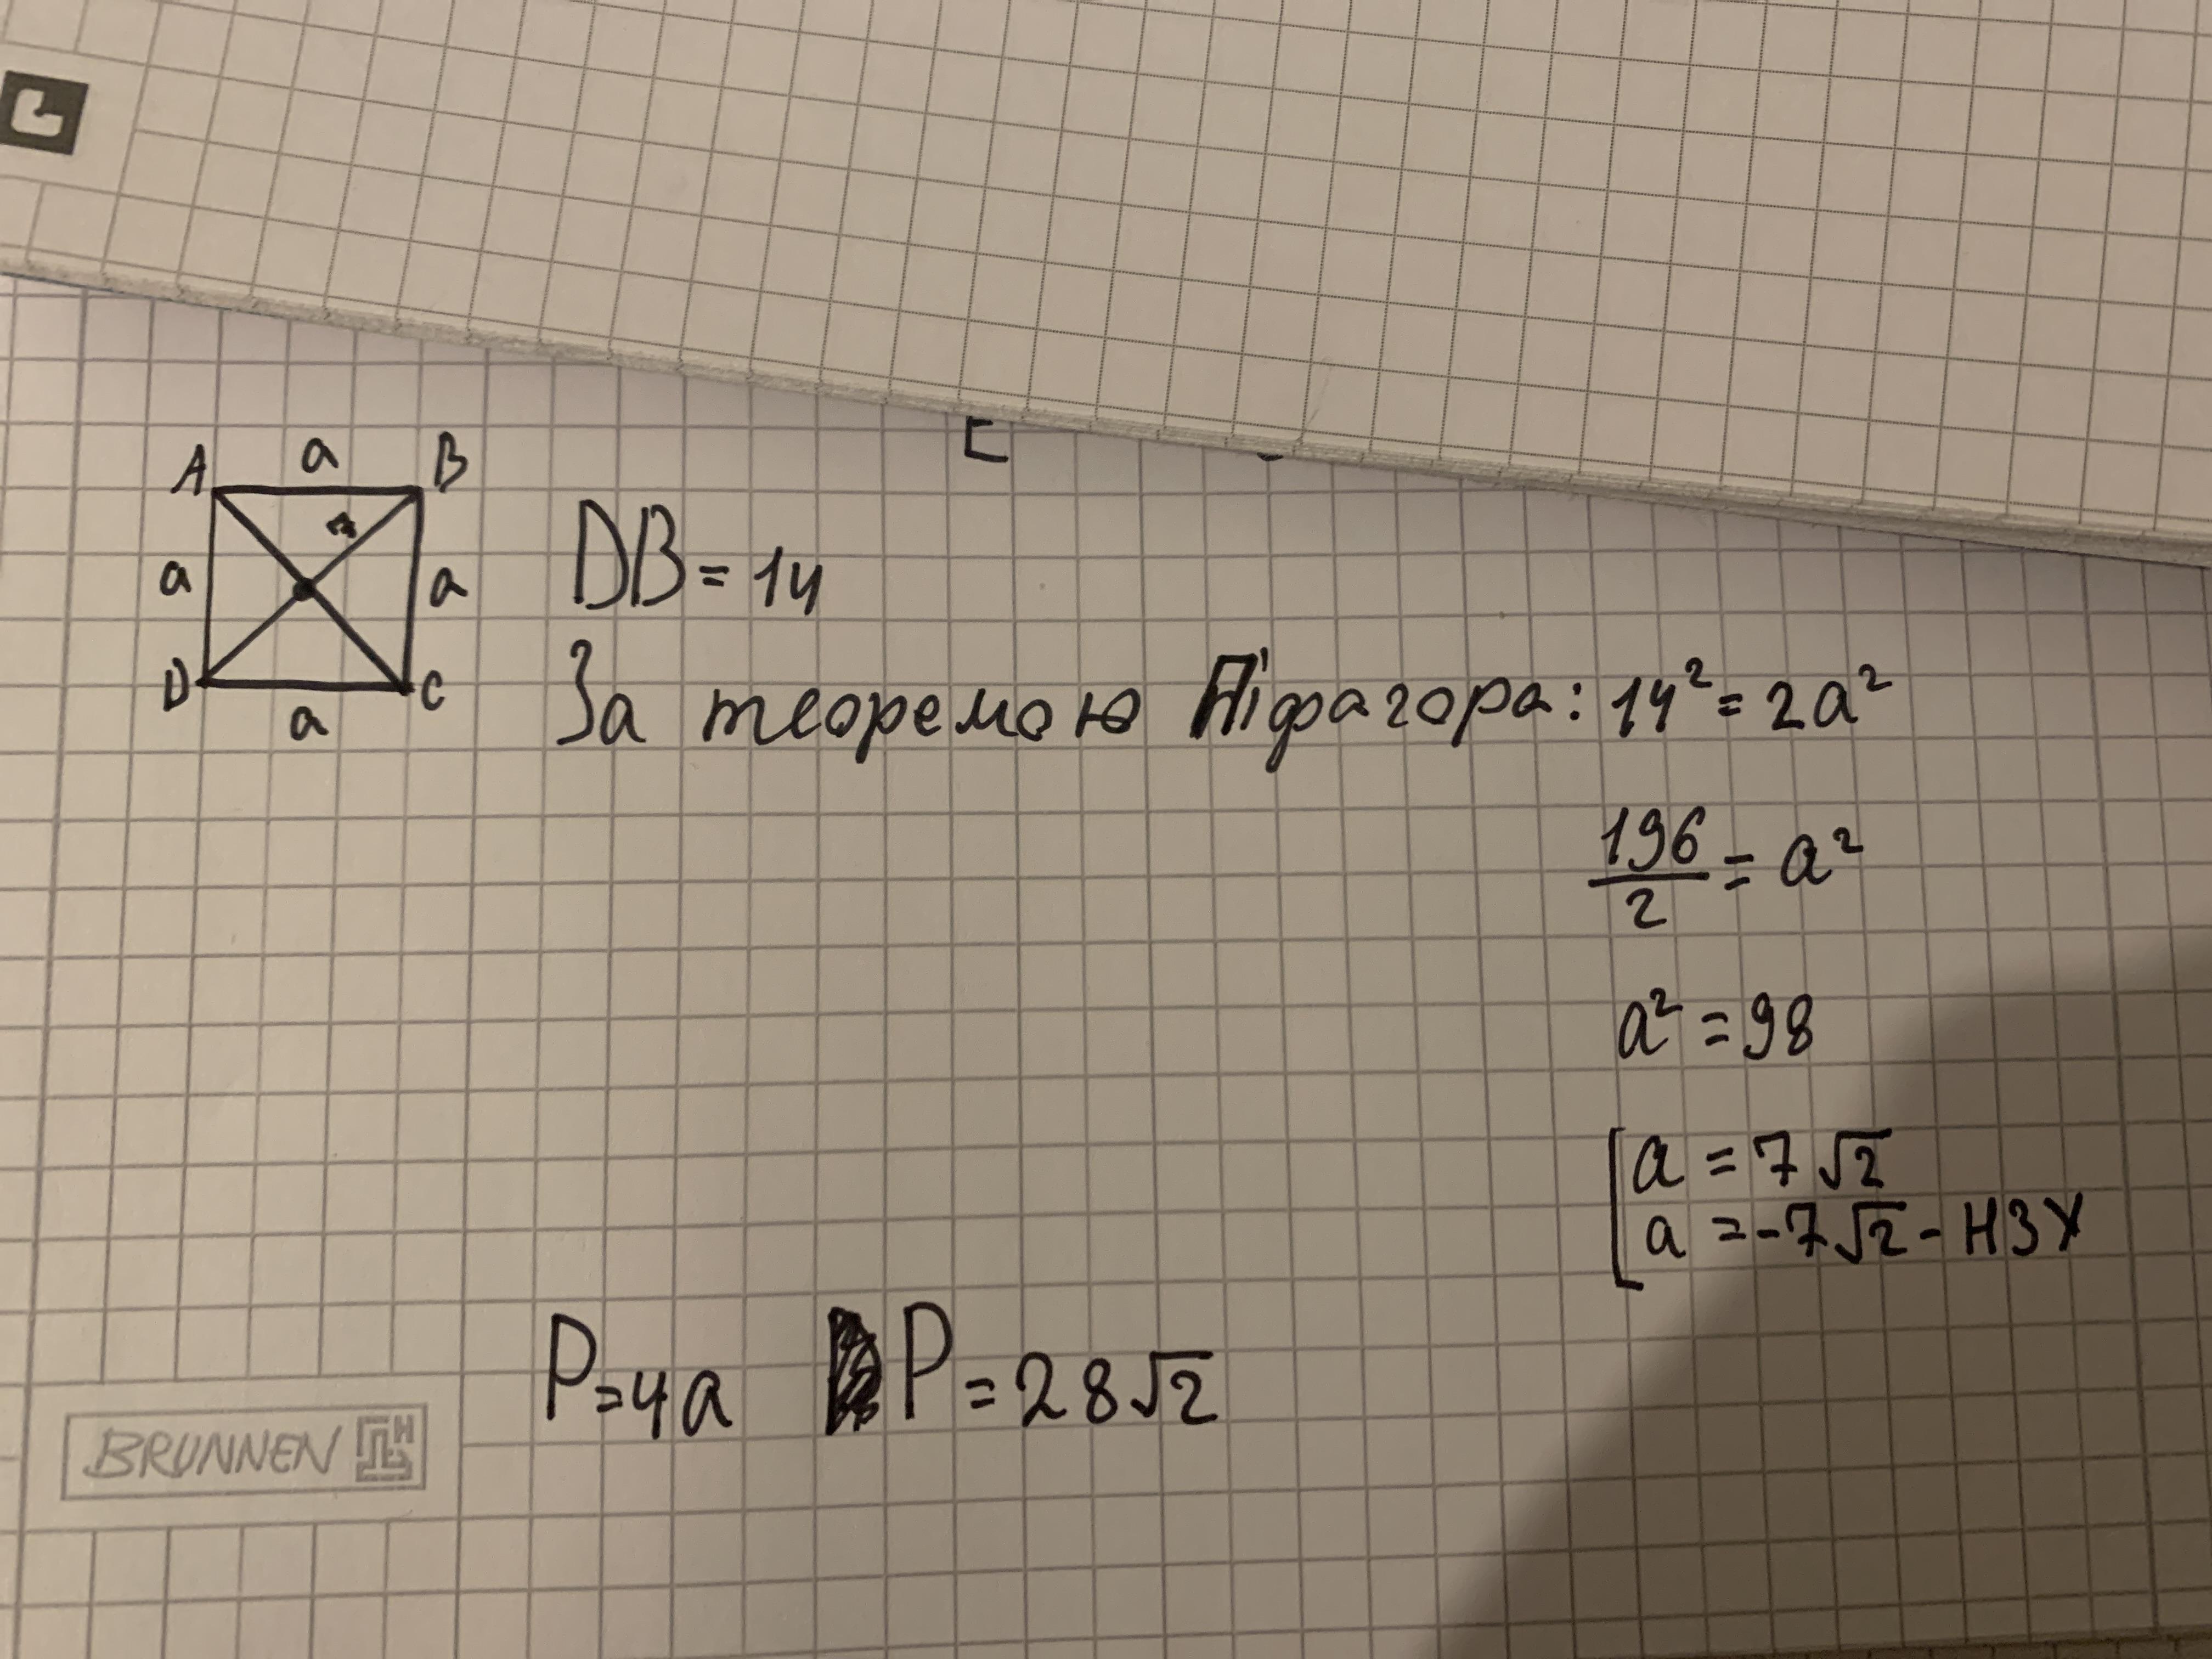 A a B
7
a a
D C
a
DB = 14
За теоремою Піфагора: 14² = 2a²
196/2 = a²
a² = 98
[ a = 7√2
a = -7√2 - НЗУ
P = 4a P = 28√2
BRUNNEN